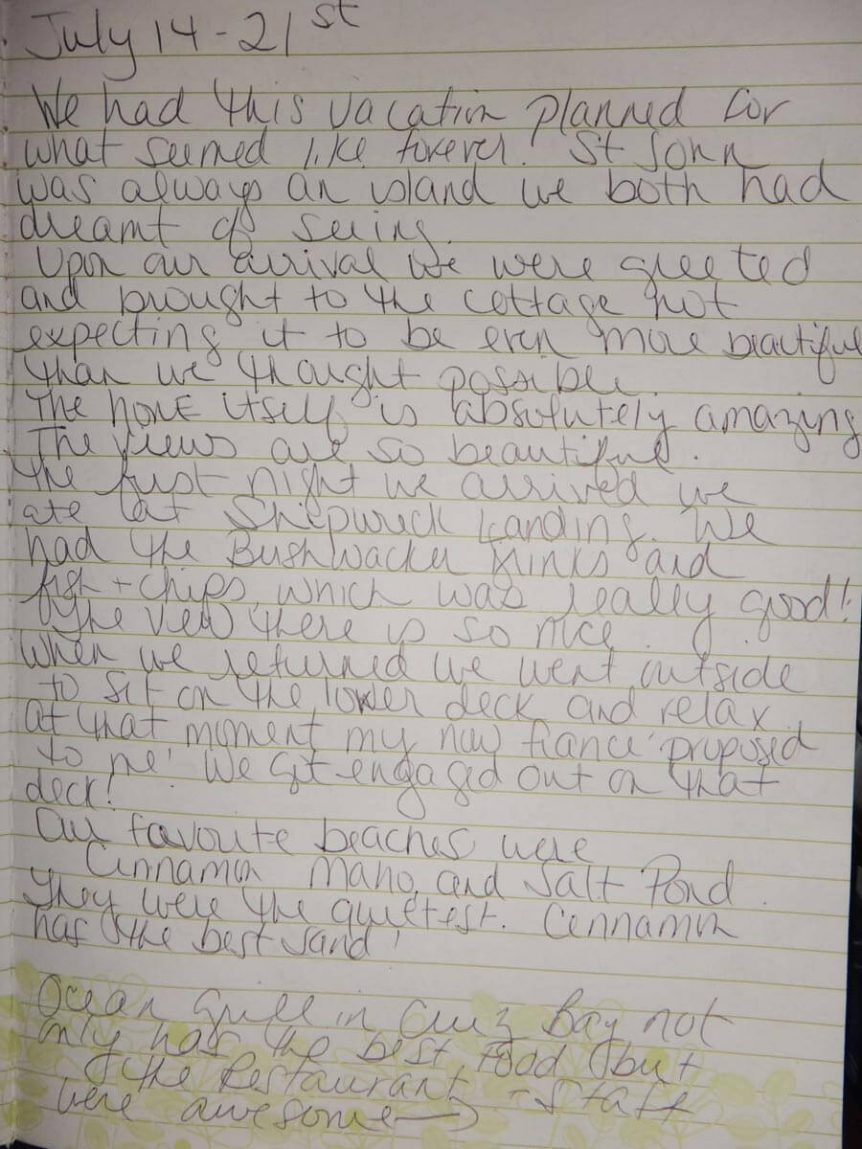 July 14 - 21st
We had this vacation planned for
what seemed like forever! St John
was always an island we both had
dreamt of seeing.
Upon our arrival we were greeted
and brought to the cottage not
expecting it to be even more beautiful
than we thought possible.
The home itself is absolutely amazing
The views are so beautiful.
The first night we arrived we
ate at Shipwreck Landing. We
had the Bushwacker drinks and
fish + chips, which was really good!
The view there is so nice.
When we returned we went outside
to sit on the lower deck and relax,
at that moment my now fiance proposed
to me! We got engaged out on that
deck!
Our favourite beaches were
Cinnamon Maho, and Salt Pond.
They were the quietest. Cennamon
has the best sand!
Ocean Grill in Cruz Bay not
only has the best food but
the Restaurant - Staff
were awesome →